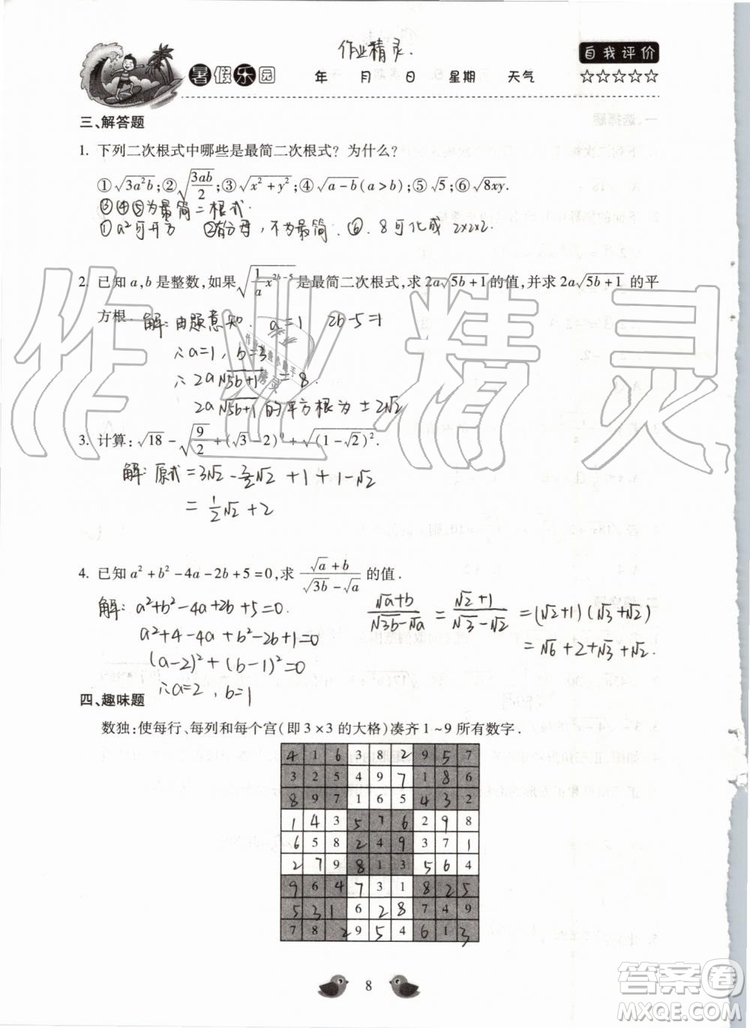 作业精灵.
暑假乐园 年 月 日 星期 天气 自我评价
☆☆☆☆☆
三、解答题
1. 下列二次根式中哪些是最简二次根式? 为什么?
①√(3a²b);②√(3ab/2);③√(x²+y²);④√(a-b)(a>b);⑤√5;⑥√(8xy).
③④⑤为最简二次根式.
①a²可开方 ②有分母,不为最简. ⑥. 8可化成2x2x2.
2. 已知 a,b 是整数,如果√((1/a)x^(2b-5))是最简二次根式,求 2a√(5b+1)的值,并求 2a√(5b+1) 的平
方根.
解: 由题意知. a=1 2b-5=1
∴a=1, b=3
∴2a√(5b+1) = 8.
2a√(5b+1) 的平方根为 ±2√2
3. 计算: √18-√(9/2)+(√3-2)⁰+√((1-√2)²).
解: 原式=3√2-3/2√2+1+1-√2
=1/2√2+2
4. 已知 a²+b²-4a-2b+5=0,求 (√a+b)/(√(3b)-√a) 的值.
解: a²+b²-4a+2b+5=0.
a²+4-4a+b²-2b+1=0
(a-2)²+(b-1)²=0
∴a=2, b=1
(√a+b)/(√3b-√a)=(√2+1)/(√3-√2)=(√2+1)(√3+√2)
=√6+2+√3+√2.
四、趣味题
数独:使每行、每列和每个宫(即 3×3 的大格)凑齐 1~9 所有数字.
4 1 6 3 8 2 9 5 7
3 2 5 4 9 7 1 8 6
8 9 7 1 6 5 4 3 2
1 4 3 5 7 6 2 9 8
6 5 8 2 4 9 3 7 1
2 7 9 8 1 3 5 6 4
9 6 4 7 3 1 8 2 5
5 3 1 6 2 8 7 4 9
7 8 2 9 5 4 6 1 3
8
作业精灵
答案圈
MXQE.COM